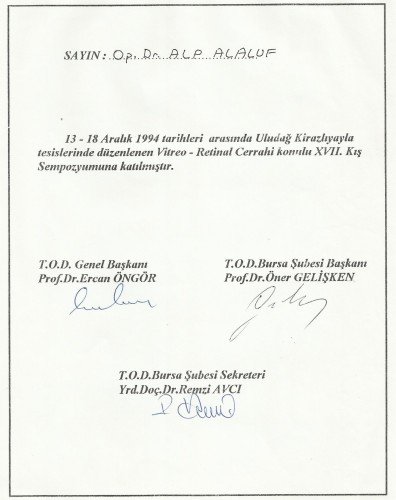 SAYIN : Op. Dr. ALP ALALUF
13 - 18 Aralık 1994 tarihleri arasında Uludağ Kirazlıyayla
tesislerinde düzenlenen Vitreo - Retinal Cerrahi konulu XVII. Kış
Sempozyumuna katılmıştır.
T.O.D. Genel Başkanı
Prof.Dr.Ercan ÖNGÖR
T.O.D.Bursa Şubesi Başkanı
Prof.Dr.Öner GELİŞKEN
T.O.D.Bursa Şubesi Sekreteri
Yrd.Doç.Dr.Remzi AVCI